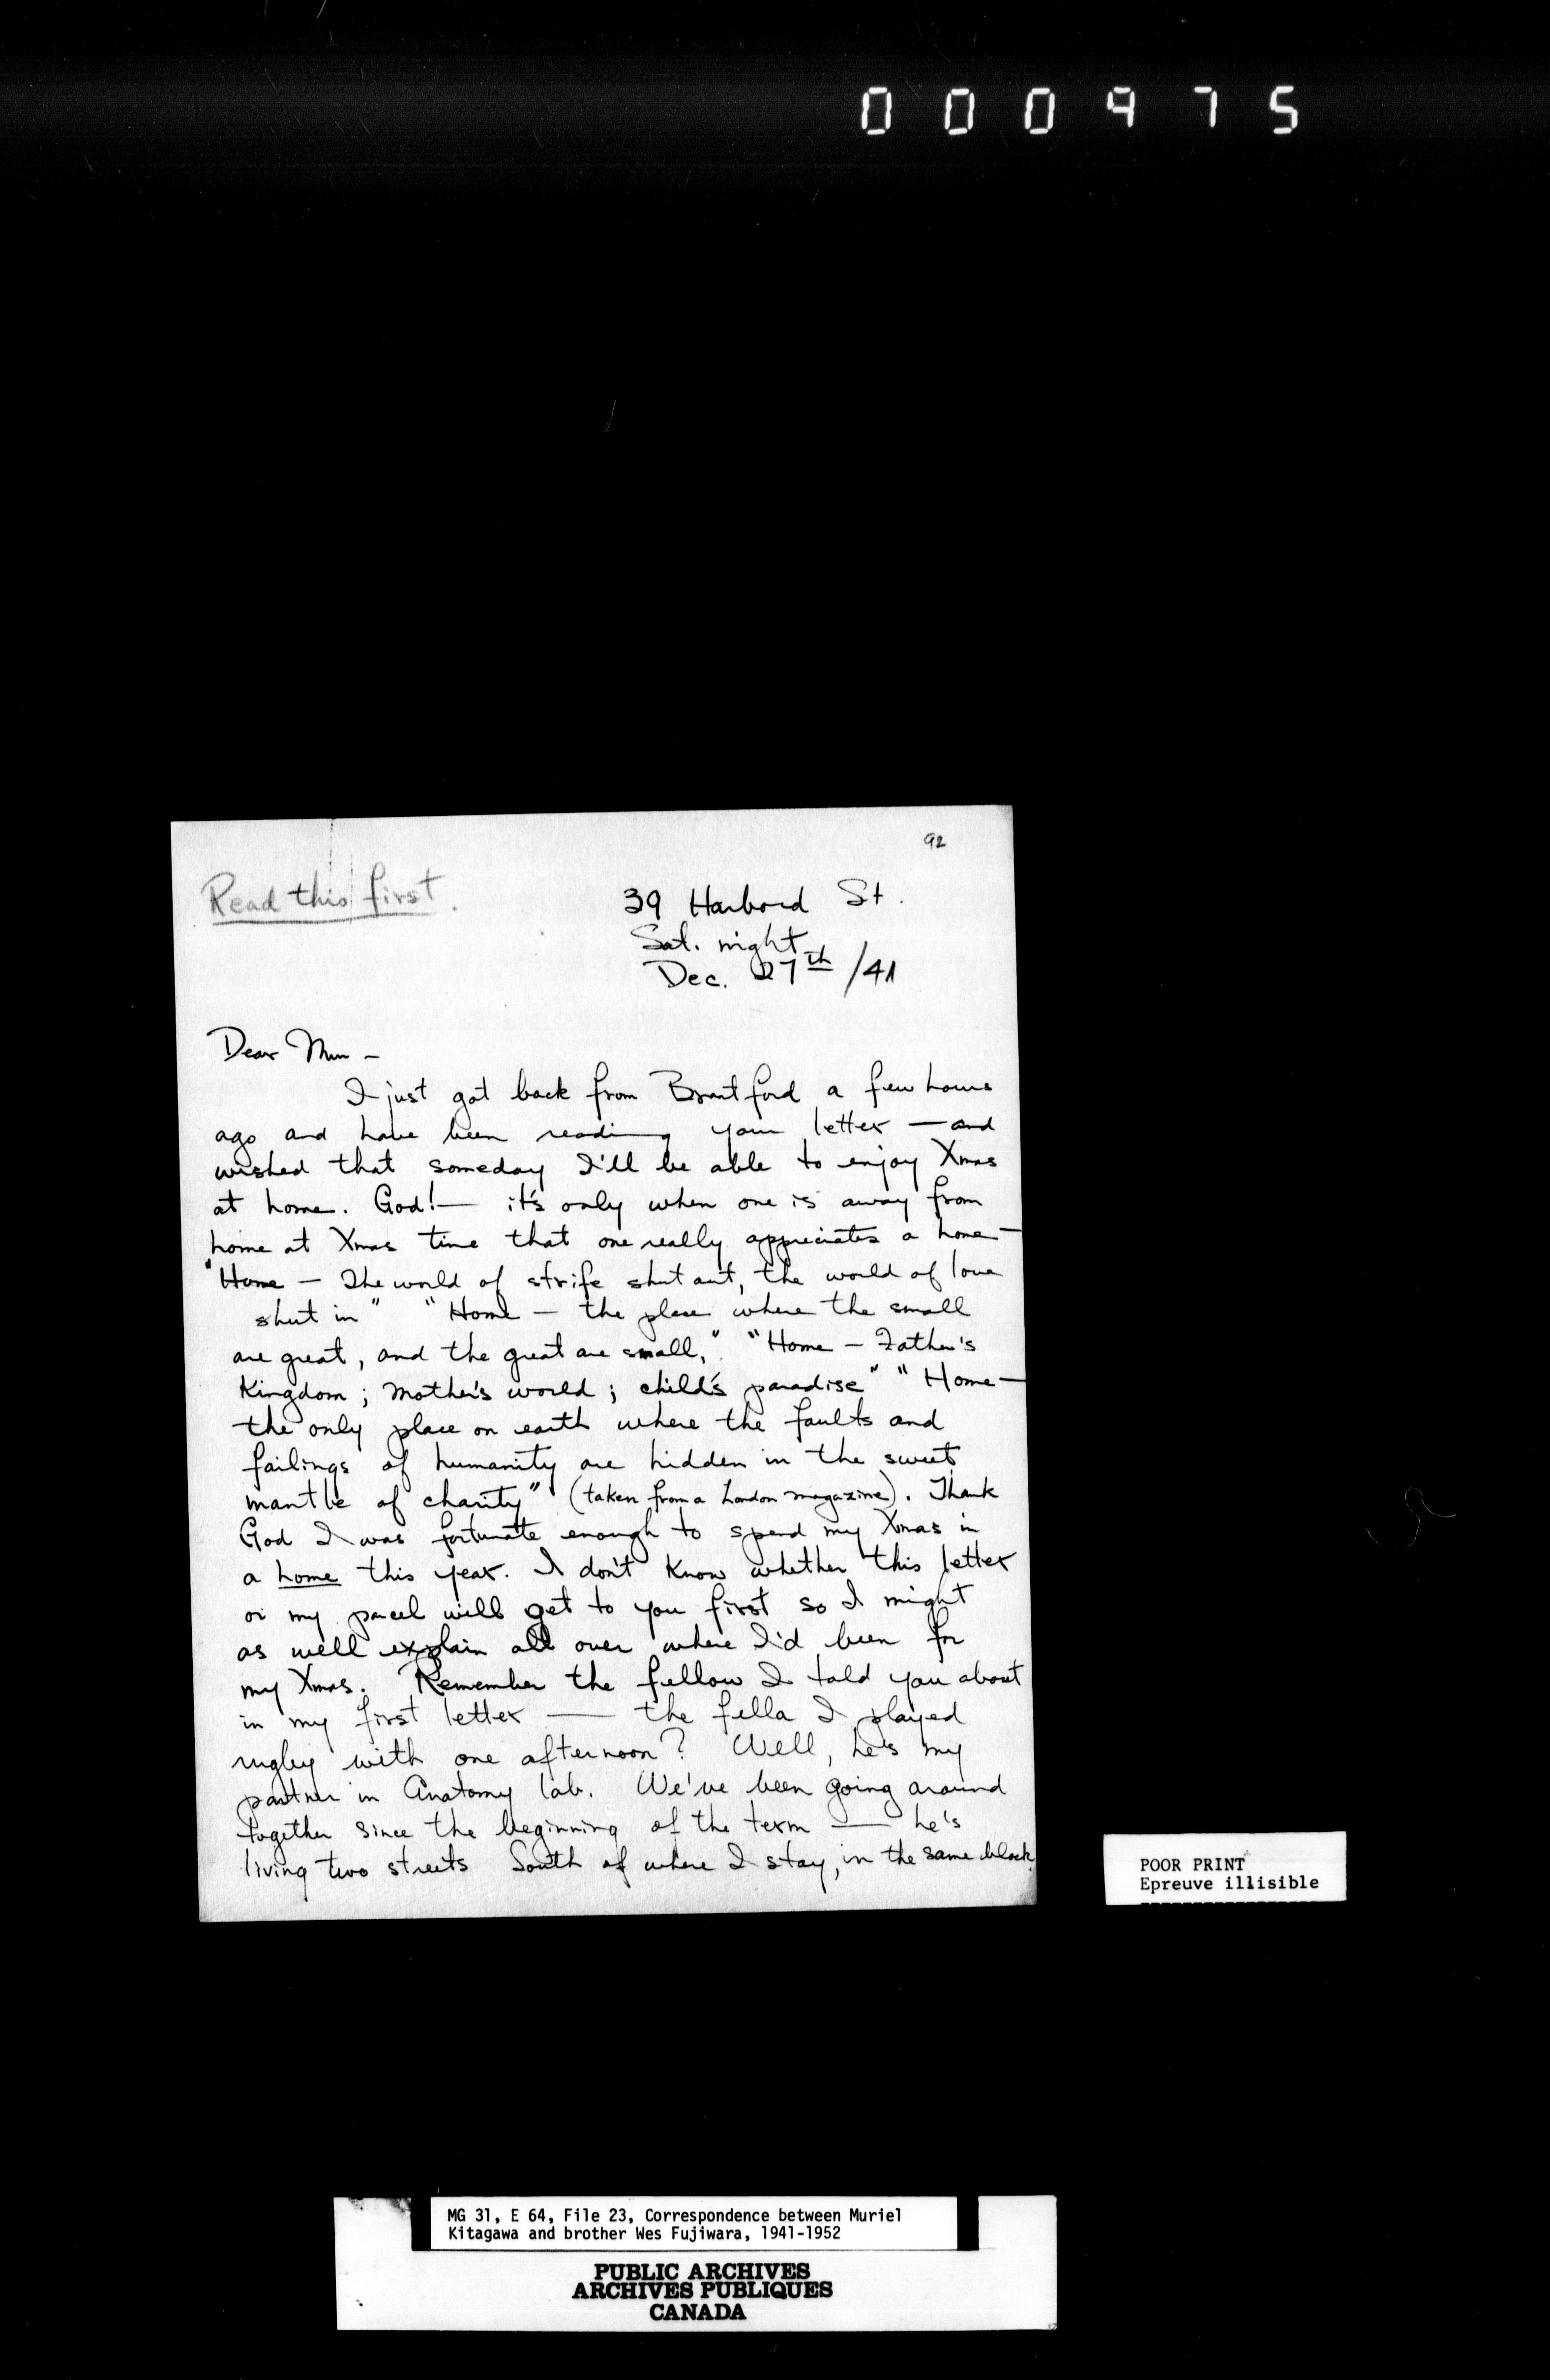 000975
92
Read this first.
39 Harbord St.
Sat. night
Dec. 27th /41
Dear Mur –
I just got back from Brantford a few hours
ago and have been reading your letter — and
wished that someday I'll be able to enjoy Xmas
at home. God! — it's only when one is away from
home at Xmas time that one really appreciates a home —
"Home – The world of strife shut out, the world of love
shut in" "Home – the place where the small
are great, and the great are small," "Home – Father's
Kingdom; Mother's world; child's paradise" "Home —
the only place on earth where the faults and
failings of humanity are hidden in the sweet
mantle of charity" (taken from a London magazine). Thank
God I was fortunate enough to spend my Xmas in
a home this year. I don't know whether this letter
or my parcel will get to you first so I might
as well explain all over where I'd been for
my Xmas. Remember the fellow I told you about
in my first letter — the fella I played
rugby with one afternoon? Well, he's my
partner in Anatomy lab. We've been going around
together since the beginning of the term — he's
living two streets South of where I stay, in the same block.
POOR PRINT
Epreuve illisible
MG 31, E 64, File 23, Correspondence between Muriel
Kitagawa and brother Wes Fujiwara, 1941-1952
PUBLIC ARCHIVES
ARCHIVES PUBLIQUES
CANADA